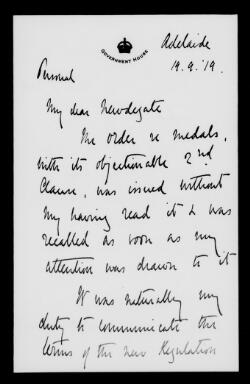 GOVERNMENT HOUSE
Adelaide
19.9.'19.
Personal
My dear Newdegate
The order re medals,
with its objectionable 2nd
Clause, was issued without
my having read it & was
recalled as soon as my
attention was drawn to it
It was naturally my
duty to communicate the
terms of the new Regulation